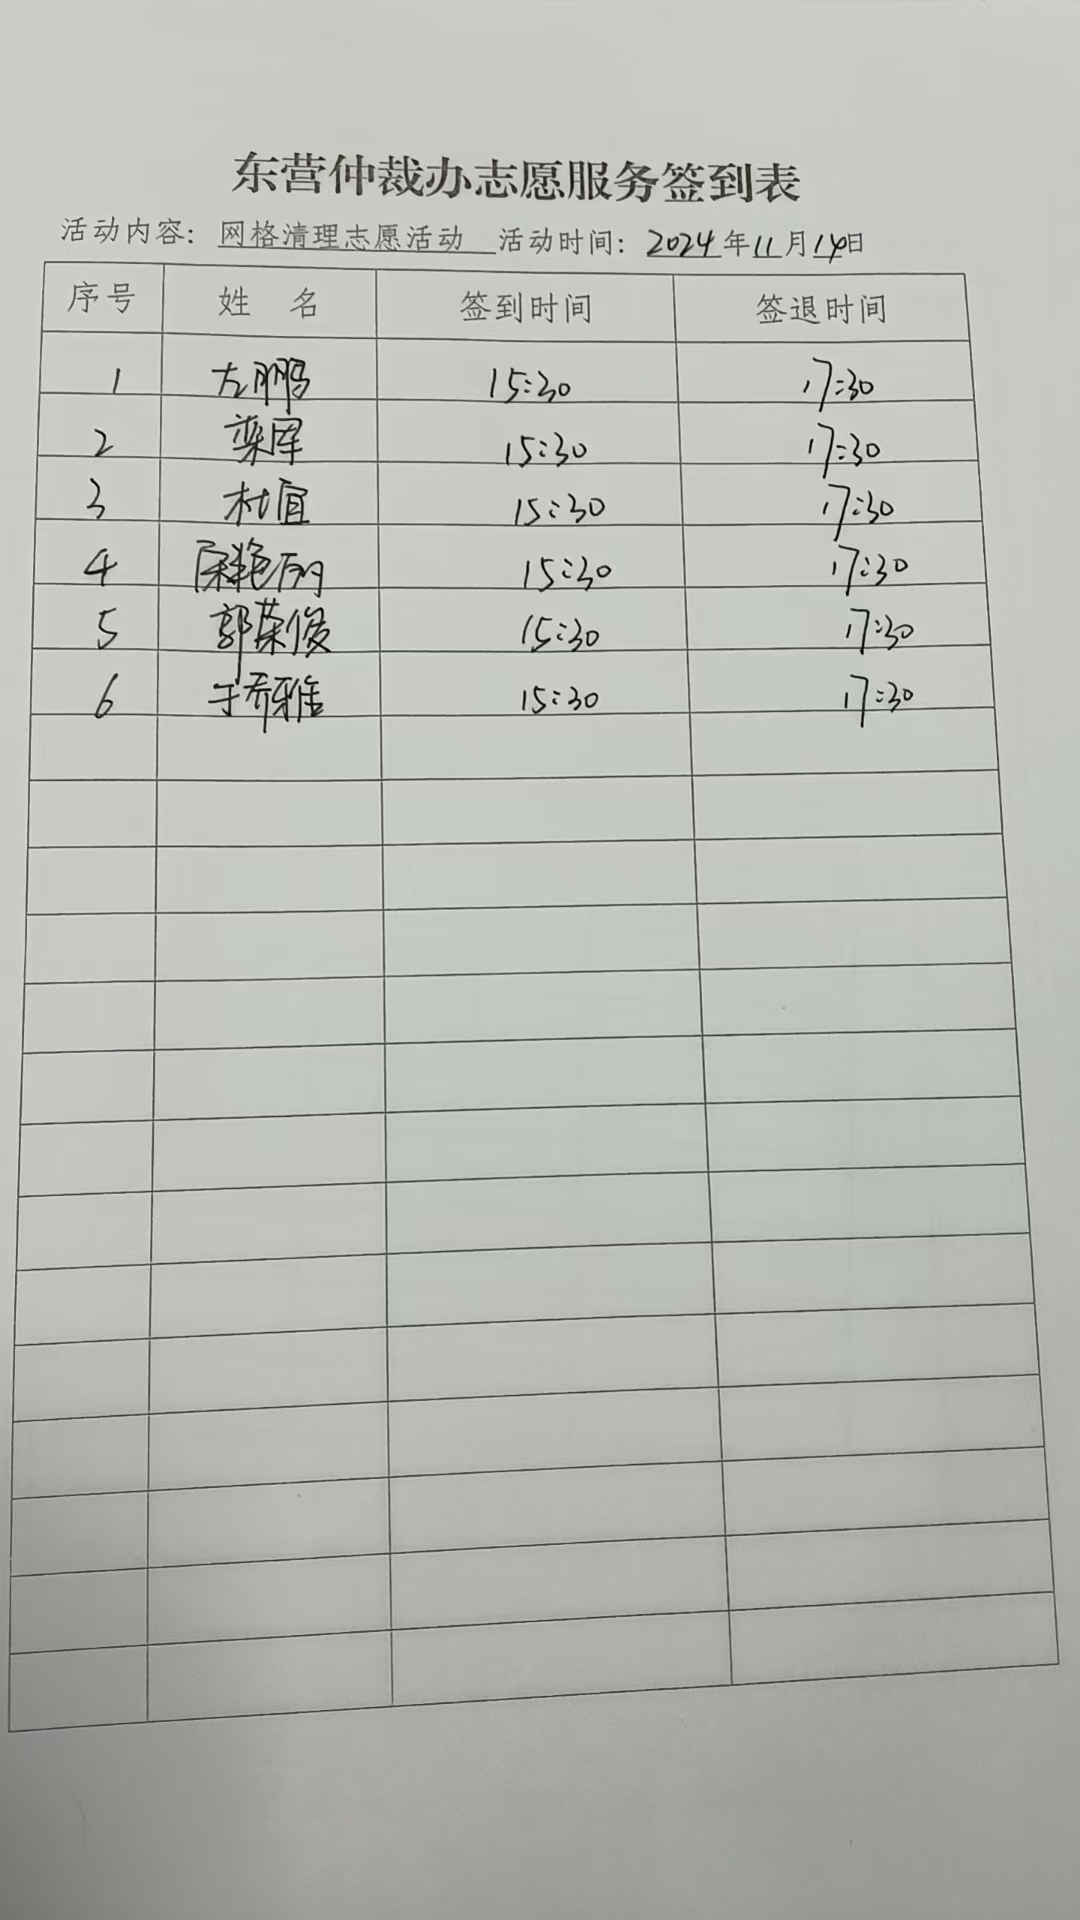 东营仲裁办志愿服务签到表
活动内容：网格清理志愿活动 活动时间：2024年11月14日
序号 姓 名 签到时间 签退时间
1 左鹏 15:30 17:30
2 栾军 15:30 17:30
3 杜宜 15:30 17:30
4 艳丽 15:30 17:30
5 郭荣俊 15:30 17:30
6 于乔雅 15:30 17:30